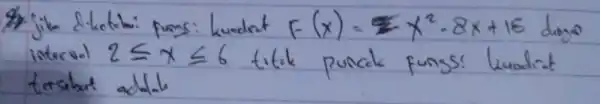 jika diketahui fungsi kuadrat F(x) = x² - 8x + 15 dengan
interval 2 ≤ x ≤ 6 titik puncak fungsi kuadrat
tersebut adalah